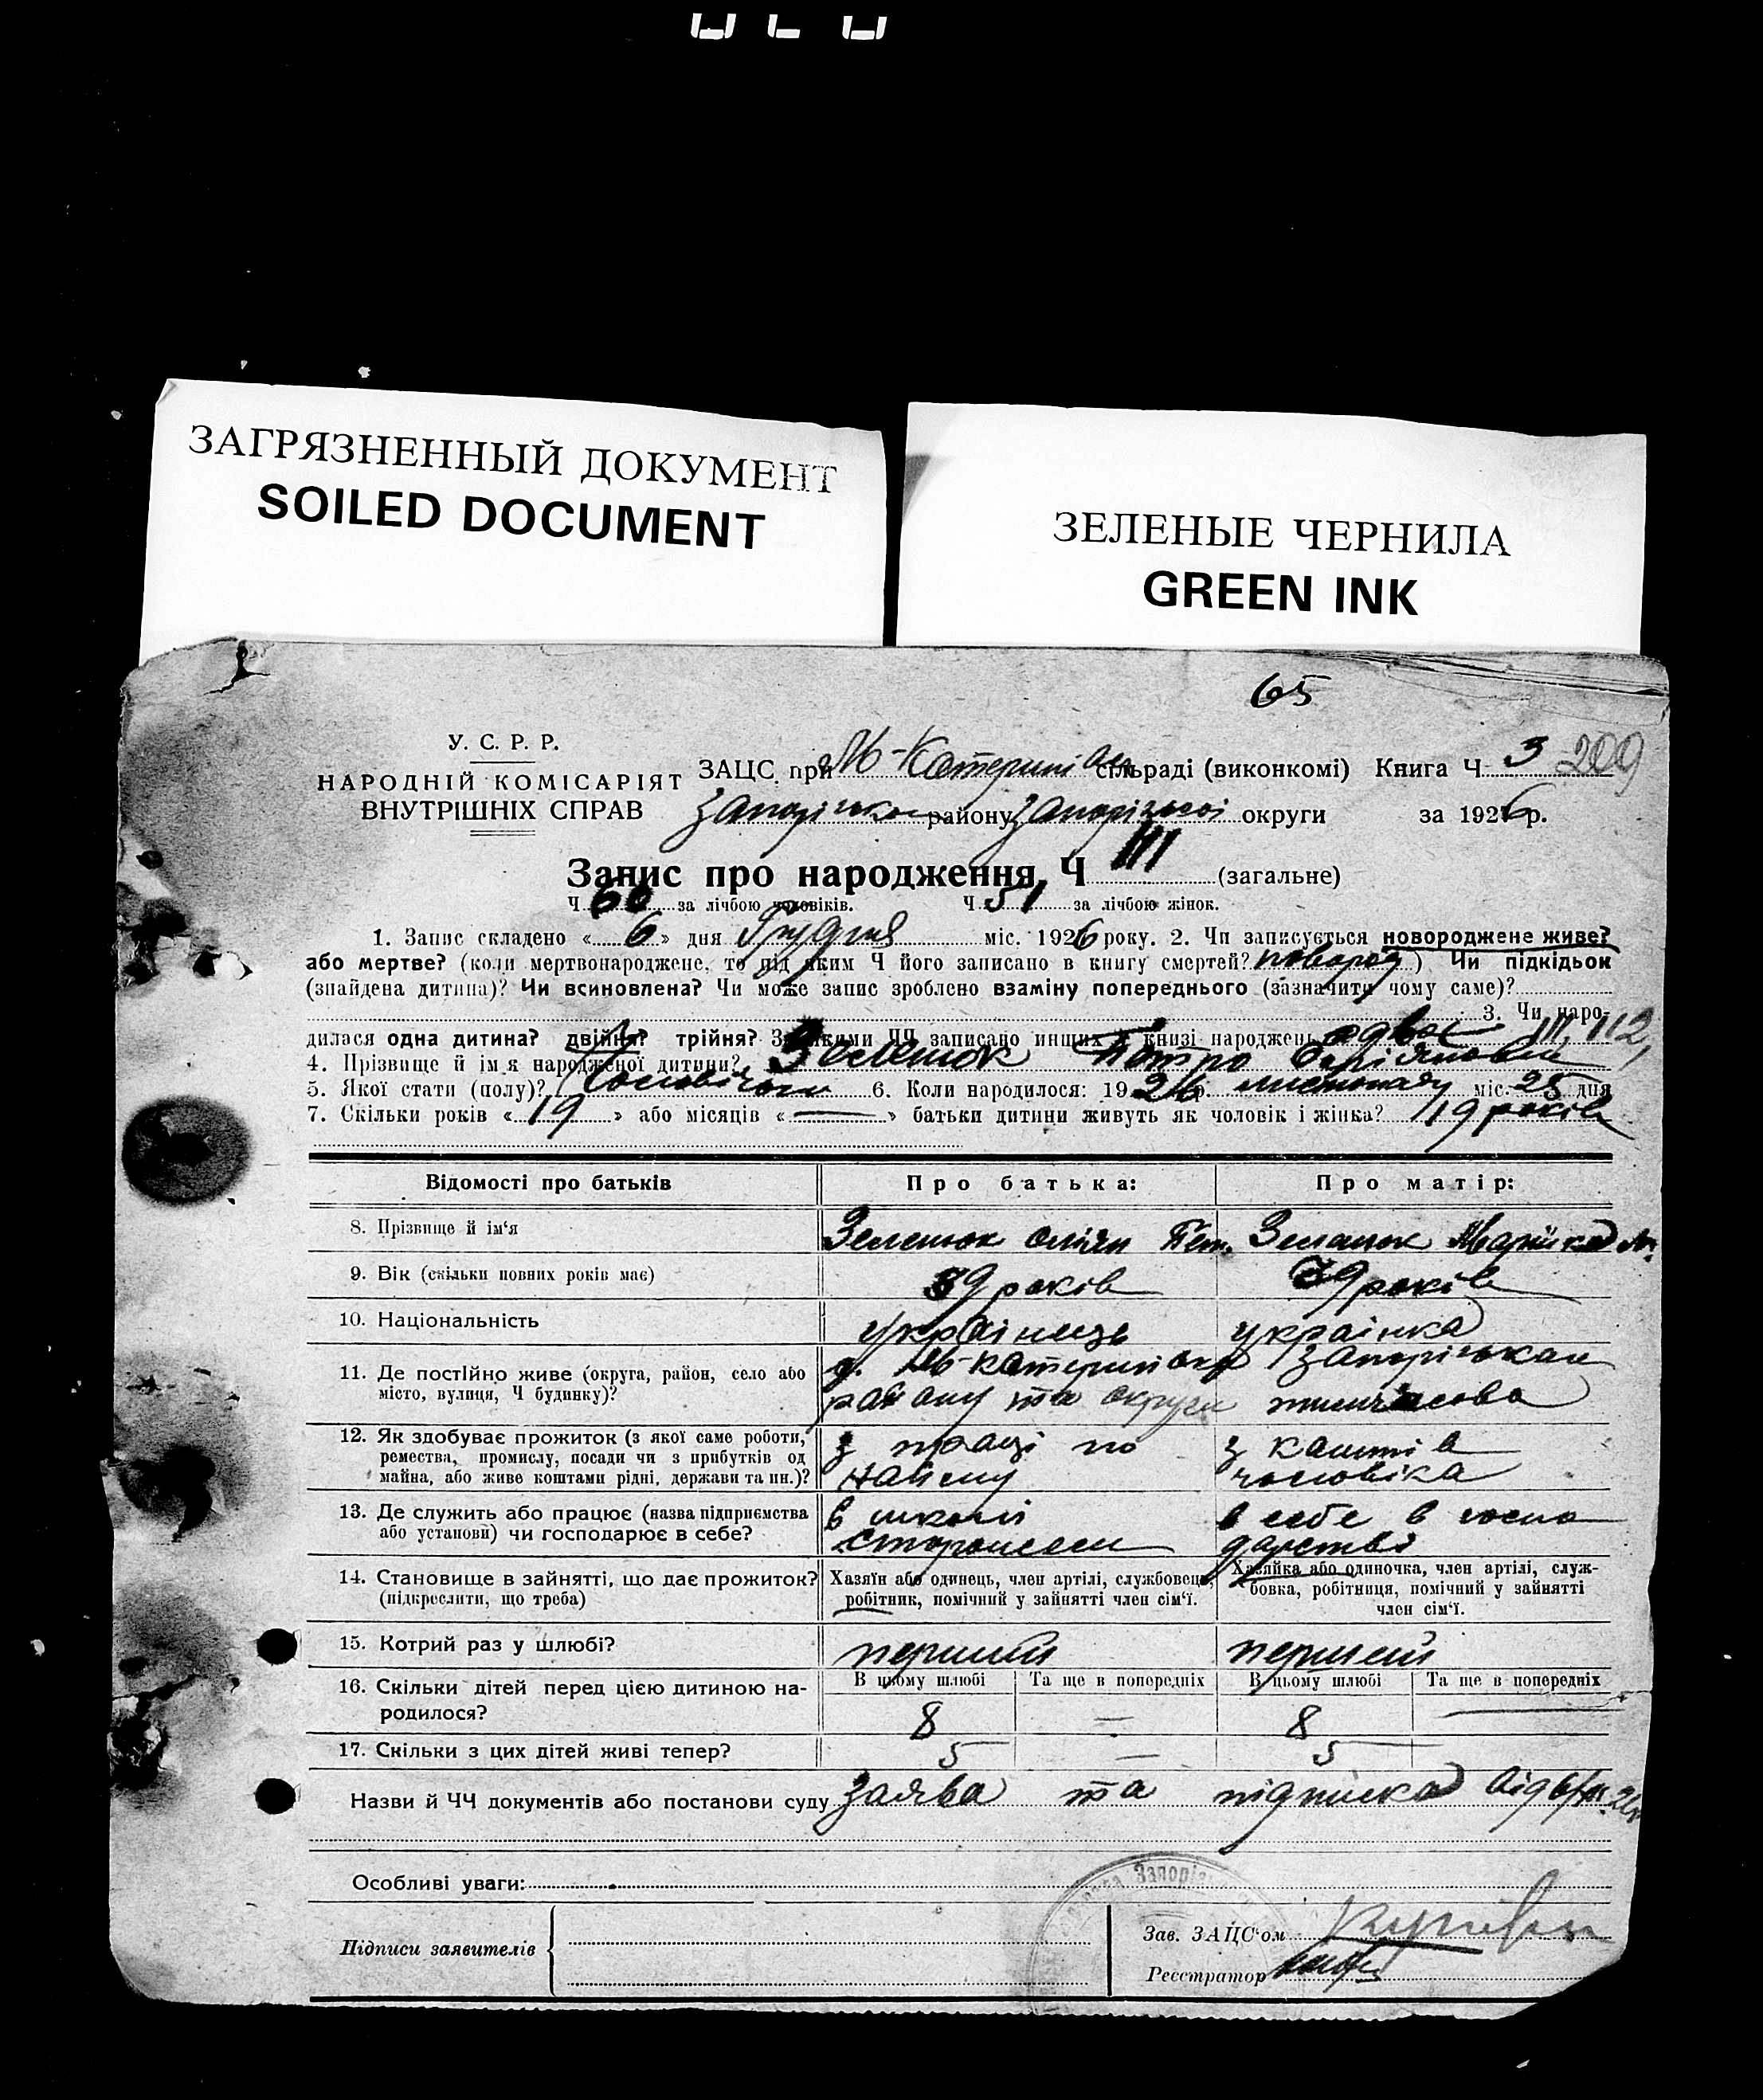 ЗАГРЯЗНЕННЫЙ ДОКУМЕНТ
SOILED DOCUMENT
ЗЕЛЕНЫЕ ЧЕРНИЛА
GREEN INK
65
У. С. Р. Р.
НАРОДНІЙ КОМІСАРІЯТ
ВНУТРІШНІХ СПРАВ
ЗАЦС при М-Катерині сільраді (виконкомі) Книга Ч 3 209
району Запорізької округи за 1926 р.
Запис про народження Ч 111 (загальне)
Ч 60 за лічбою чоловіків. Ч 51 за лічбою жінок.
1. Запис складено « 6 » дня Грудня міс. 1926 року. 2. Чи записується новороджене живе?
або мертве? (коли мертвонароджене, то під яким Ч його записано в книгу смертей? новород) Чи підкідьок
(знайдена дитина)? Чи всиновлена? Чи може запис зроблено взаміну попереднього (зазначити чому саме)?
3. Чи наро-
дилася одна дитина? двійня? трійня? За якими ЧЧ записано инших в книзі народжень двоє 111, 112,
4. Прізвище й ім'я народженої дитини? Зеленюк Петро
5. Якої стати (полу)? Чоловічого 6. Коли народилося: 1926 р. листопаду міс. 25 дня
7. Скільки років « 19 » або місяців « — » батьки дитини живуть як чоловік і жінка? 19 років
Відомості про батьків Про батька: Про матір:
8. Прізвище й ім'я Зеленюк Пет. Зеленюк Марійка
9. Вік (скільки повних років має) 39 років 39 років
10. Національність українець українка
11. Де постійно живе (округа, район, село або с. М-Катеринівка Запорізькаго
місто, вулиця, Ч будинку)? району та округи
12. Як здобуває прожиток (з якої саме роботи, з праці по з коштів
ремества, промислу, посади чи з прибутків од найму чоловіка
майна, або живе коштами рідні, держави та ин.)?
13. Де служить або працює (назва підприємства в школі в себе в госпо
або установи) чи господарює в себе? сторожем дарстві
14. Становище в зайнятті, що дає прожиток? Хазяїн або одинець, член артілі, службовець, Хазяйка або одиночка, член артілі, служ-
(підкреслити, що треба) робітник, помічний у зайнятті член сім'ї. бовка, робітниця, помічний у зайнятті
член сім'ї.
15. Котрий раз у шлюбі? перший перший
16. Скільки дітей перед цією дитиною на- В цьому шлюбі Та ще в попередніх В цьому шлюбі Та ще в попередніх
родилося? 8 — 8 —
17. Скільки з цих дітей живі тепер? 5 — 5
Назви й ЧЧ документів або постанови суду заява та підписка від
Особливі уваги:
Підписи заявителів
Зав. ЗАЦС'ом
Реєстратор